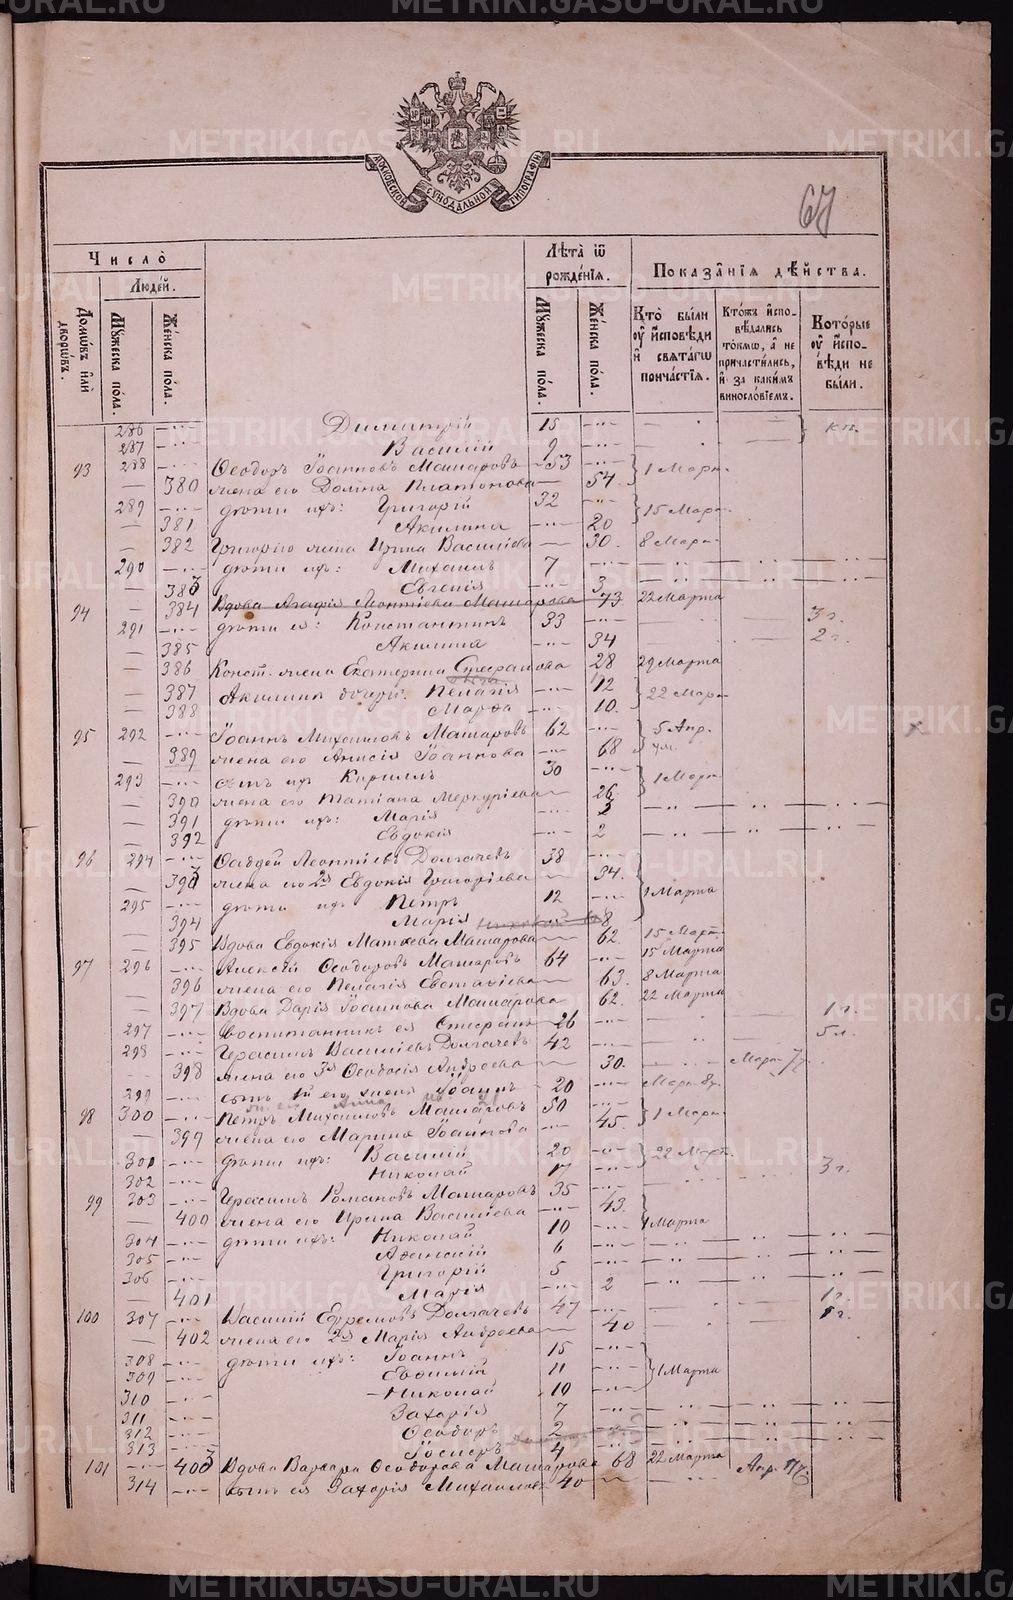 МОСКОВСКОЙ СѴНОДАЛЬНОЙ ТИПОГРАФІИ
67
Число̀
Людей.
Домѡвъ илѝ дворѡвъ.
Мꙋжеска по́ла.
Же́нска по́ла.
Лѣ́та ѿ рожде́нїѧ.
Мꙋжеска по́ла.
Же́нска по́ла.
Показа̑нїѧ дѣ́йства.
Кто̀ бы́ли ᲂу҆ и҆сповѣди и҆ свѧта́гѡ прича́стїѧ.
Кто́жъ и҆сповѣ́дались то́кмѡ, а҆ не причасти́лись, и҆ за каки́мъ винослові́емъ.
Кото́рые ᲂу҆ и҆спо́вѣди не бы́ли.
286 Димитрій 15
287 Василій 9
93 288 Ѳеодоръ Іоанновъ Машаровъ 53 1 Март.
380 жена его Домна Платонова 54
289 дѣти ихъ: Григорій 32 15 Март.
381 Акилина 20
382 Григорію жена Ирина Васильева 30. 8 Март.
290 дѣти ихъ: Михаилъ 7
383 Евгенія 3
94 384 Вдова Агафія Леонтіева Машарова 73 22 Марта
291 дѣти ея: Константинъ 33 3 г.
385 Акилина 34 2 г.
386 Конст. жена Екатерина 28 29 Марта
387 Акилины дочери: Пелагія 12 22 Март.
388 Марѳа 10.
95 292 Іоаннъ Михаиловъ Машаровъ 62 5 Апр.
389 жена его Анисія Іоаннова 68
293 сынъ ихъ Кириллъ 30 1 Март.
390 жена его Татіана Меркуріева 26.
391 дѣти ихъ: Марія 3
392 Евдокія 2
96 294 Ѳаддей Леонтіевъ Долгачевъ 38
393 жена его 2я Евдокія Григоріева 34. 1 Марта
295 дѣти ихъ Петръ 12
394 Марія 8
395 Вдова Евдокія Матѳеева Машарова 62. 15 Март.
97 296 Алексій Ѳеодоровъ Машаровъ 64 15 Марта
396 жена его Пелагія Евстаѳіева 63. 8 Марта
397 Вдова Дарія Іоаннова Машарова 62. 22 Марта
297 воспитанникъ ея Стефанъ 26 1 г.
298 Герасимъ Василіевъ Долгачевъ 42 5 л.
398 жена его 3я Ѳеодосія Андреева 30. Март. 7
299 сынъ 1й его жены Іоаннъ 20 Март. 8
98 300 Петръ Михаиловъ Машаровъ 50 1 Март.
399 жена его Марина Іоаннова 45.
301 дѣти ихъ: Василій 20 22 Март.
302 Николай 17 3 г.
99 303 Герасимъ Романовъ Машаровъ 35
400 жена его Ирина Васильева 43. 1 Марта
304 дѣти ихъ: Николай 10
305 Аѳанасій 6
306 Григорій 5
401 Марія 2
100 307 Василій Ефремовъ Долгачевъ 47 1 г.
402 жена его 2я Марія Андреева 40 1 г.
308 дѣти ихъ: Іоаннъ 15
309 Евѳимій 11 1 Марта
310 Николай 10
311 Захарія 7
312 Ѳеодоръ 2
313 Іосифъ 4
101 403 Вдова Варвара Ѳеодорова Машарова 68 22 Марта
314 сынъ ея Захарія Михаиловъ 40 Апр. 17
METRIKI.GASO-URAL.RU